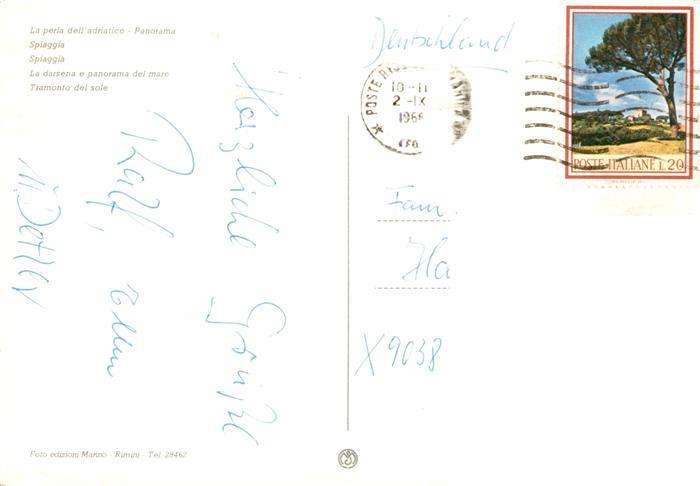 La perla dell'adriatico - Panorama
Spiaggia
Spiaggia
La darsena e panorama del mare
Tramonto del sole
Herzliche Grüße
Ralf, Ellen
u. Detlev
Foto edizioni Manzo - Rimini - Tel 28462
Deutschland
POSTE RIC
10-11
2-IX
1966
POSTE ITALIANE L. 20
Fam.
Ha
X9038